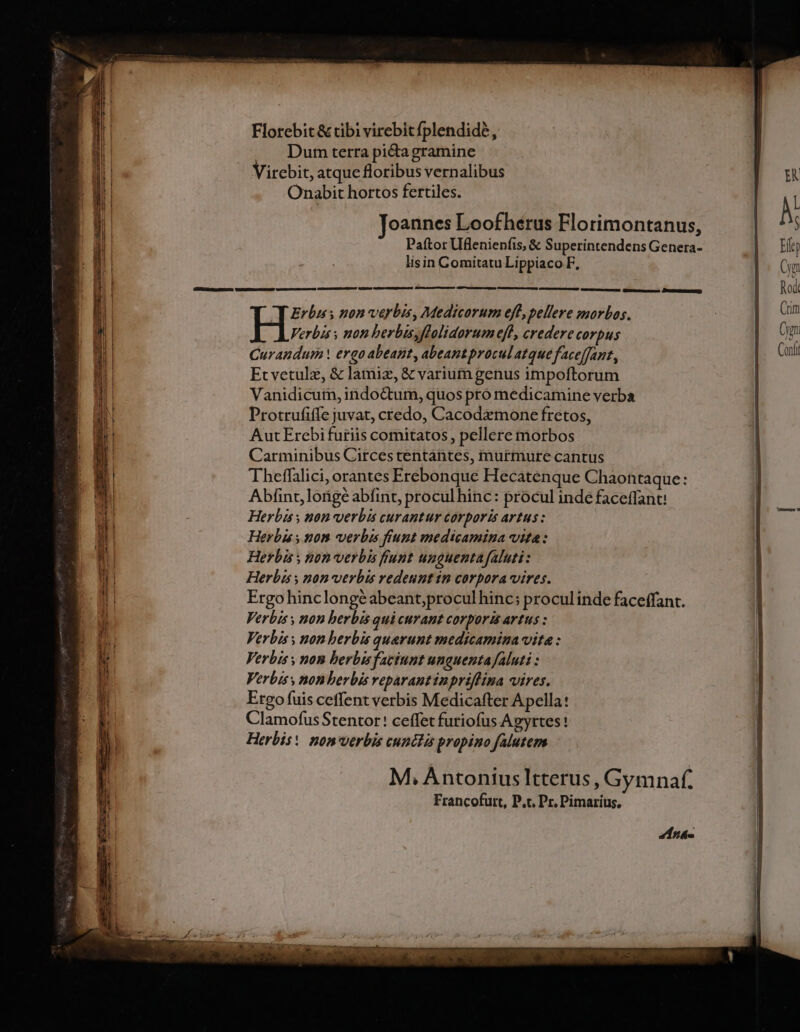 Florebit & tibi virebit ſplendidè,
Dum terra picta gramine
Virebit, atque floribus vernalibus
Onabit hortos fertiles.
Joannes Loofherus Florimontanus,
Paſtor Uſlenienſis, & Superintendens Genera-
lis in Comitatu Lippiaco F.
HErbis; non verbis, Medicorum eſt, pellere morbos.
Verbis; non herbis, ſtolidorum eſt, credere corpus
Curandum: ergo abeant, abeant procul atque faceſſant,
Et vetulæ, & lamiæ, & varium genus impoſtorum
Vanidicum, indoctum, quos pro medicamine verba
Protruſiſſe juvat, credo, Cacodæmone fretos,
Aut Erebi furiis comitatos, pellere morbos
Carminibus Circes tentantes, murmure cantus
Theſſalici, orantes Erebonque Hecatenque Chaontaque:
Abſint, longè abſint, procul hinc: procul inde faceſſant!
Herbis; non verbis curantur corporis artus:
Herbis; non verbis fiunt medicamina vitæ:
Herbis; non verbis fiunt unguenta ſaluti:
Herbis; non verbis redeunt in corpora vires.
Ergo hinc longè abeant, procul hinc; procul inde faceſſant.
Verbis; non herbis qui curant corporis artus:
Verbis; non herbis quærunt medicamina vitæ:
Verbis; non herbis faciunt unguenta ſaluti:
Verbis; non herbis reparant in priſtina vires.
Ergo ſuis ceſſent verbis Medicaſter Apella!
Clamoſus Stentor! ceſſet furioſus Agyrtes!
Herbis! non verbis cunctis propino ſalutem
M. Antonius Itterus, Gymnaſ.
Francofurt, P.t. Pr. Pimarius.
Ana-
ER
Eſſep
Cygn
Rode
Crim
Cygni
Confit